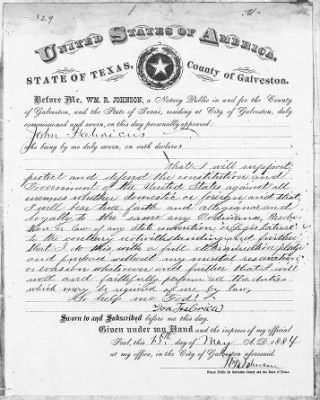 29
United States of America.
STATE OF TEXAS, County of Galveston.
Before Me, WM. R. JOHNSON, a Notary Public in and for the County
of Galveston, and the State of Texas, residing at City of Galveston, duly
commissioned and sworn, on this day personally appeared
John Fabricius
who being by me duly sworn, on oath declares
that I will support
protect and defend the constitution and
Government of the United States against all
enemies whether domestic or foreign and that
I will bear true faith and allegiance and
loyalty to the same any Ordinance, Resolu-
tion or Law of any state convention or Legislature
to the contrary notwithstanding and further
that I do this with a full determination pledge
and purpose without any mental reservation
or evasion whatsoever and further that I will
well and faithfully perform all the duties
which may be required of me by law,
So help me God!
Sworn to and Subscribed before me this day.
Given under my Hand and the impress of my official
Seal, this 15th day of May A.D. 1884
at my office, in the City of Galveston aforesaid.
Wm R Johnson
Notary Public for Galveston County and the State of Texas.